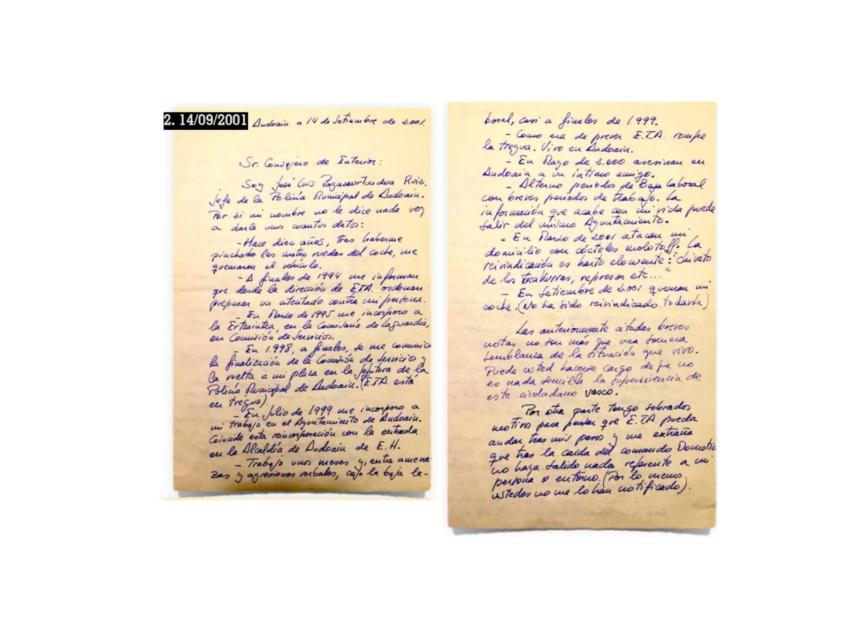 2. 14/09/2001
Andoain a 14 de Setiembre de 2001.
Sr. Consejero de Interior:
Soy José Luis Pagazaurtundua Ruiz,
jefe de la Policía Municipal de Andoain.
Por si mi nombre no le dice nada voy
a darle unos cuantos datos:
-Hace diez años, tras haberme
pinchado las cuatro ruedas del coche, me
quemaron el vehículo.
- A finales de 1994 me informan
que desde la dirección de ETA ordenan
preparar un atentado contra mi persona.
- En Marzo de 1995 me incorporo a
la Ertzaintza, en la Comisaría de Laguardia,
en Comisión de Servicios.
- En 1.998, a finales, se me comunica
la finalización de la Comisión de Servicio y
la vuelta a mi plaza en la Jefatura de la
Policía Municipal de Andoain. (E.T.A. está
en tregua).
- En Julio de 1999 me incorporo a
mi trabajo en el Ayuntamiento de Andoain.
Coincide esta reincorporación con la entrada
en la Alcaldía de Andoain de E.H.
- Trabajo unos meses y, entre amena-
zas y agresiones verbales, cojo la baja la-
boral, casi a finales de 1.999.
- Como era de prever E.T.A. rompe
la tregua. Vivo en Andoain.
- En Mayo de 2.000 asesinan en
Andoain a un íntimo amigo.
- Alterno periodos de Baja Laboral
con breves periodos de trabajo. La
información que acabe con mi vida puede
salir del mismo Ayuntamiento.
- En Marzo de 2001 atacan mi
domicilio con cócteles molotoff. La
reivindicación es harto elocuente: "chivato
de los txakurras, represor etc..."
- En Setiembre de 2001 queman mi
coche. (No ha sido reivindicado todavía)
Las anteriormente citadas breves
notas, no son más que una somera
semblanza de la situación que vivo.
Puede usted hacerse cargo de que no
es nada sencilla la supervivencia de
este ciudadano vasco.
Por otra parte tengo sobrados
motivos para pensar que E.T.A pueda
andar tras mis pasos y me extraña
que tras la caída del comando Donosti
no haya salido nada referente a mi
persona o entorno. (Por lo menos
ustedes no me lo han notificado).